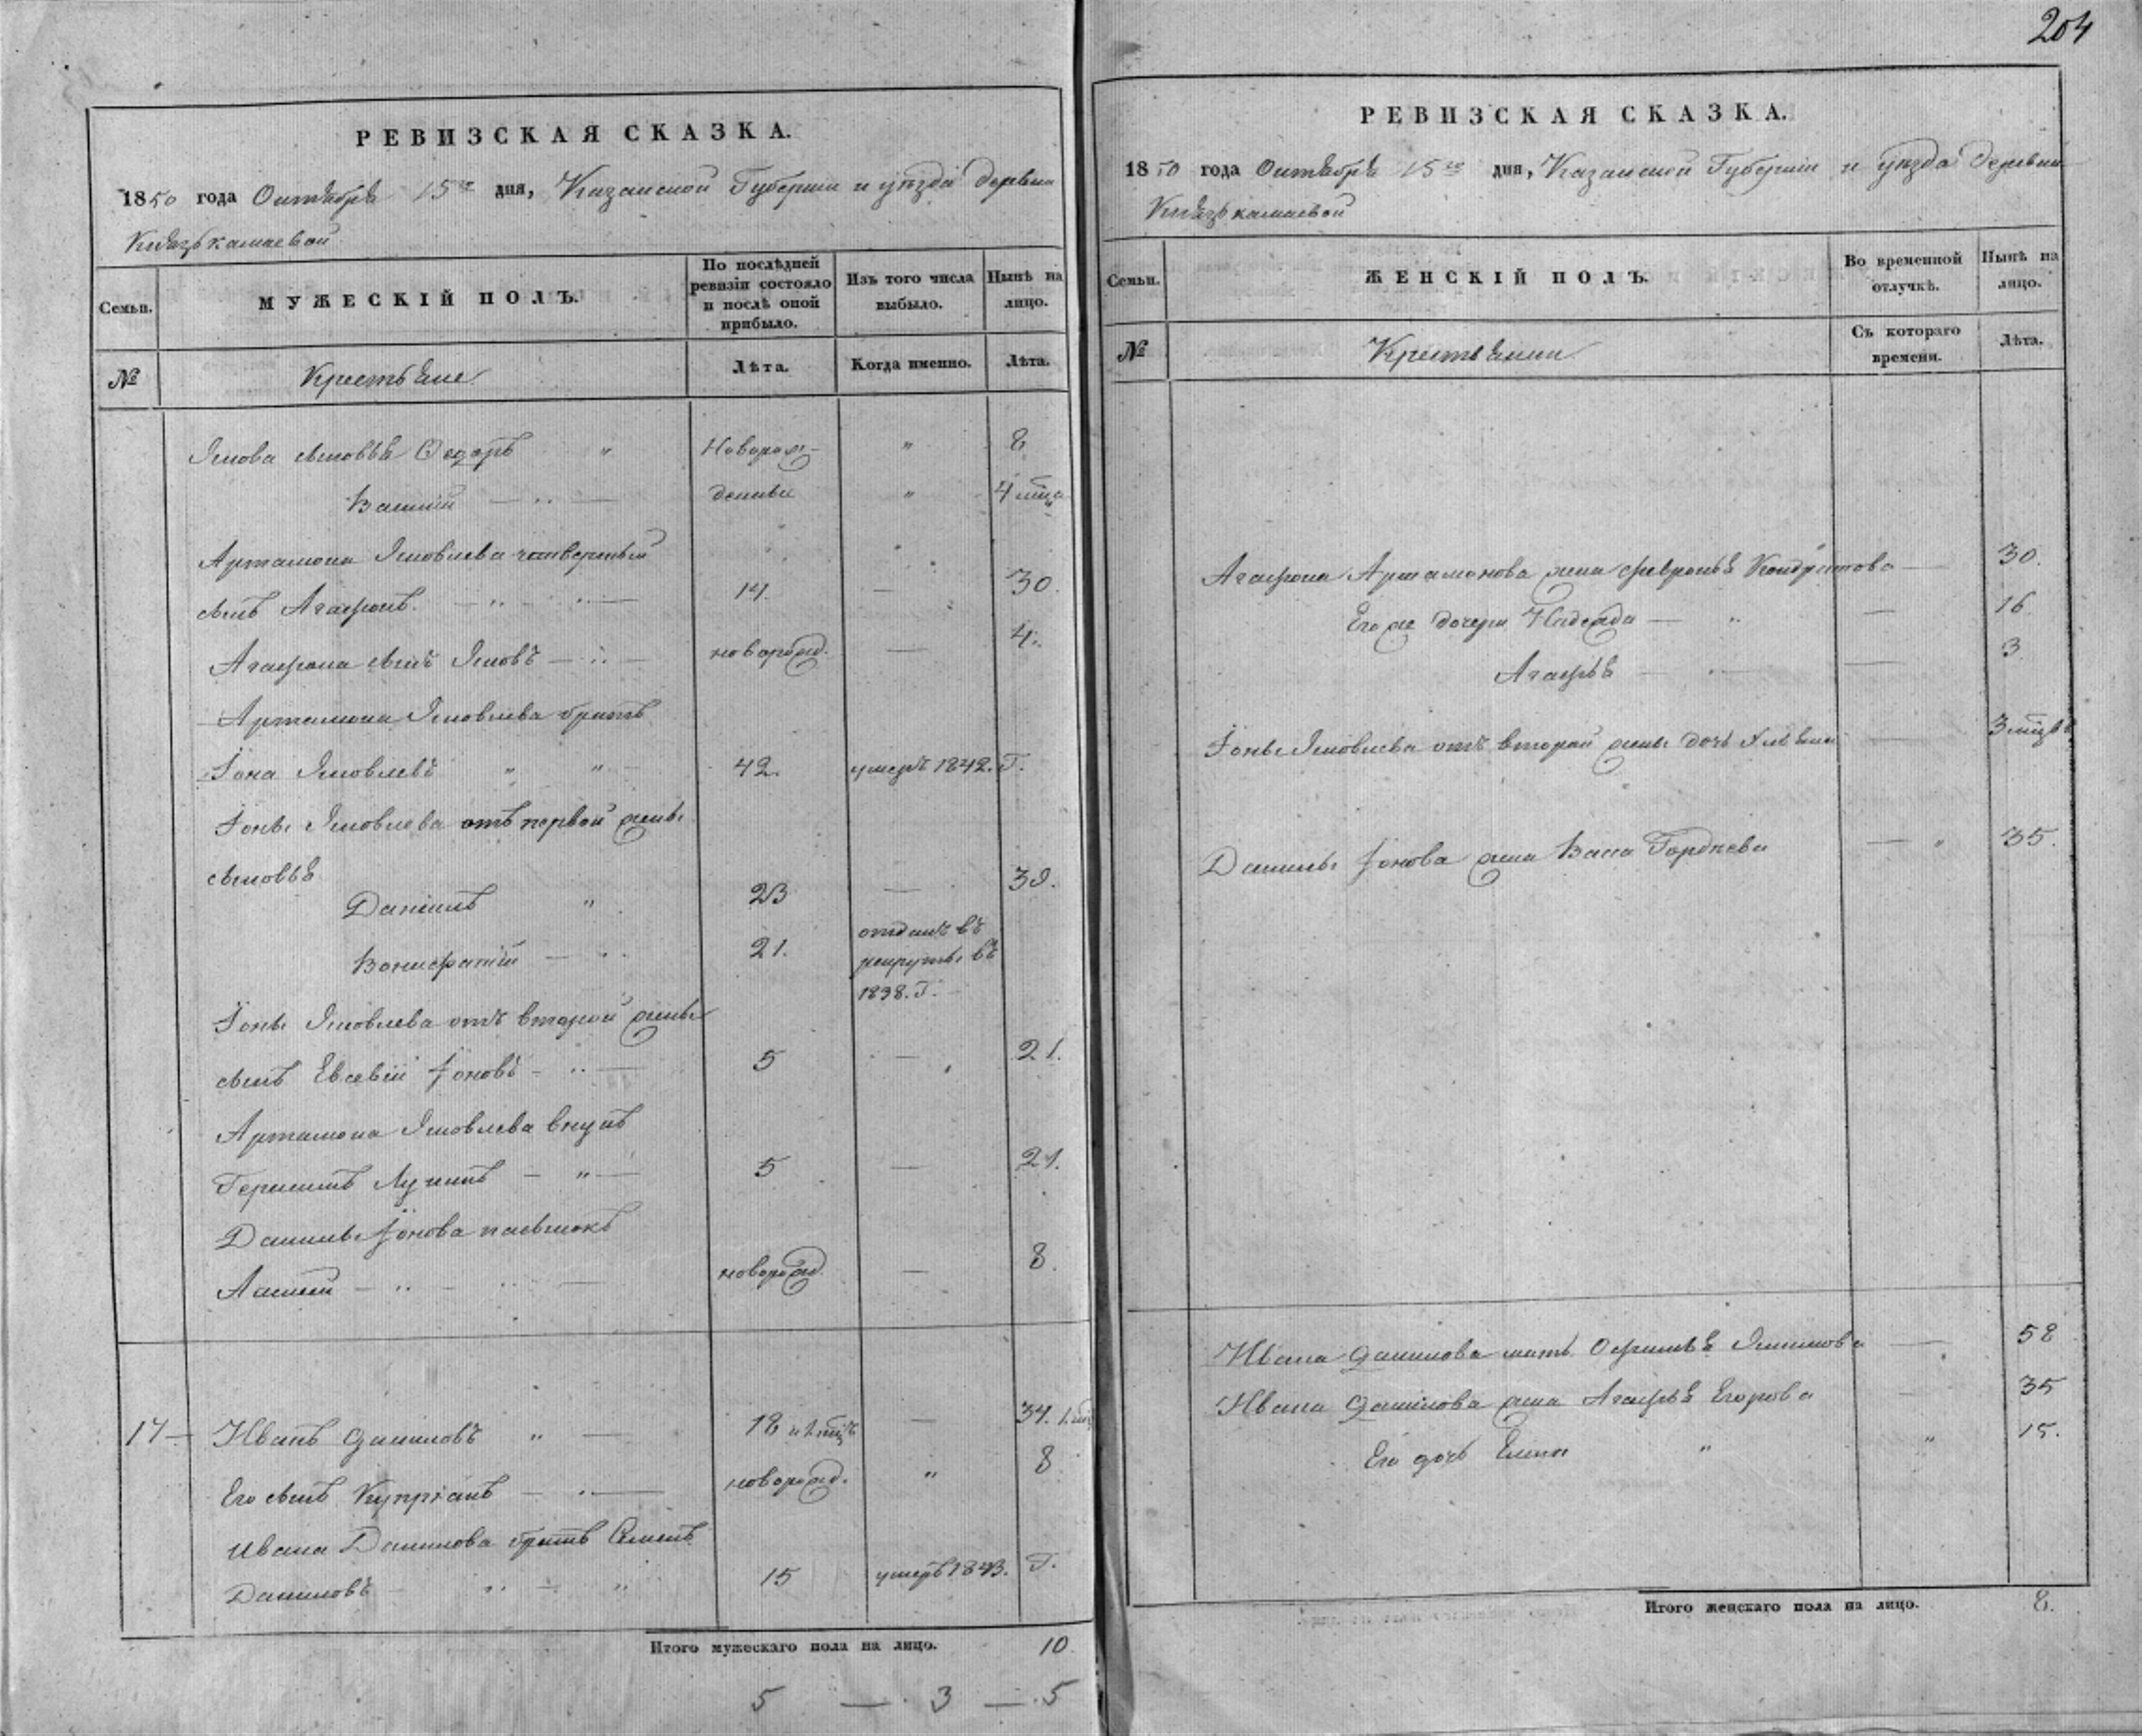 204
РЕВИЗСКАЯ СКАЗКА.
1850 года Октября 15го дня, Казанской Губернии и уѣзда деревни
Князь камаевой
Семьи.
МУЖЕСКІЙ ПОЛЪ.
По послѣдней ревизіи состояло и послѣ оной прибыло.
Изъ того числа выбыло.
Нынѣ на лицо.
№
Крестьяне
Лѣта.
Когда именно.
Лѣта.
Якова сыновья Ѳедоръ " Новорож- " 8
Василій денные " 4 мѣца
Артамона Яковлева четвертый
сынъ Агафонъ. 14 — 30.
Агафона сынъ Яковъ новорожд. — 4.
Артамона Яковлева братъ
Іона Яковлевъ " " 42. умеръ 1842. Г.
Іоны Яковлева отъ первой жены
сыновья
Даніилъ " 23 — 39.
Вонифатій 21. отданъ въ
рекруты въ
1838. Г.
Іоны Яковлева отъ второй жены
сынъ Евсевій Іоновъ 5 — 21.
Артамона Яковлева внукъ
Герасимъ Лукинъ — " — 5 — 21.
Данилы Іонова пасынокъ
новорожд. — 8.
17 — Иванъ Даниловъ " — 18 и 1 мѣц — 34. 1 мѣц
Его сынъ Купріанъ новорожд. " 8
Ивана Данилова братъ Семенъ
Даниловъ 15 умеръ 1843. Г.
Итого мужескаго пола на лицо. 10
5 — 3 — 5
РЕВИЗСКАЯ СКАЗКА.
1850 года Октября 15го дня, Казанской Губерніи и уѣзда деревни
Князь камаевой
Семьи.
ЖЕНСКІЙ ПОЛЪ.
Во временной отлучкѣ.
Нынѣ на лицо.
№
Крестьянки
Съ котораго времени.
Лѣта.
Агафона Артамонова жена Февронья Кондратова — 30.
Его же дочери Надежда — " — 16
Агафья — 3
Іоны Яковлева отъ второй жены дочь Ульяна — 3 мѣцвъ
Данилы Іонова жена Васа Гордѣева — " 35.
Ивана Данилова мать Офимья Якимова — 58
Ивана Данилова жена Агафья Егорова — 35
Его дочь Елена " " 15.
Итого женскаго пола на лицо. 8.